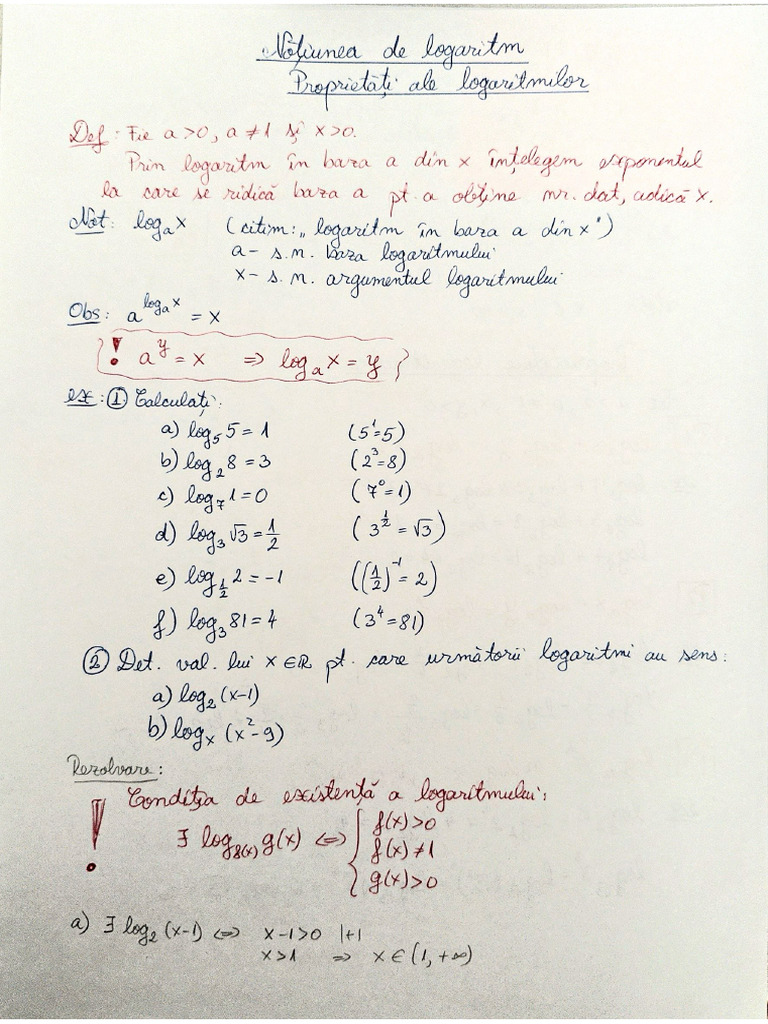 Noțiunea de logaritm
Proprietăți ale logaritmilor
Def: Fie a>0, a≠1 și x>0.
Prin logaritm în baza a din x înțelegem exponentul
la care se ridică baza a pt. a obține nr. dat, adică x.
Not: logₐx (citim: „logaritm în baza a din x")
a – s.n. baza logaritmului
x – s.n. argumentul logaritmului
Obs: a^(logₐx) = x
! a^y = x ⇒ logₐx = y
ex: ① Calculați:
a) log₅5 = 1 (5¹=5)
b) log₂8 = 3 (2³=8)
c) log₇1 = 0 (7⁰=1)
d) log₃√3 = 1/2 (3^(1/2) = √3)
e) log_(1/2) 2 = -1 ((1/2)⁻¹ = 2)
f) log₃81 = 4 (3⁴=81)
② Det. val. lui x∈ℝ pt. care următorii logaritmi au sens:
a) log₂(x-1)
b) logₓ(x²-9)
Rezolvare:
! Condiția de existență a logaritmului:
∃ log_f(x) g(x) ⇔ { f(x)>0
f(x)≠1
g(x)>0
a) ∃ log₂(x-1) ⇔ x-1>0 |+1
x>1 ⇒ x∈(1,+∞)